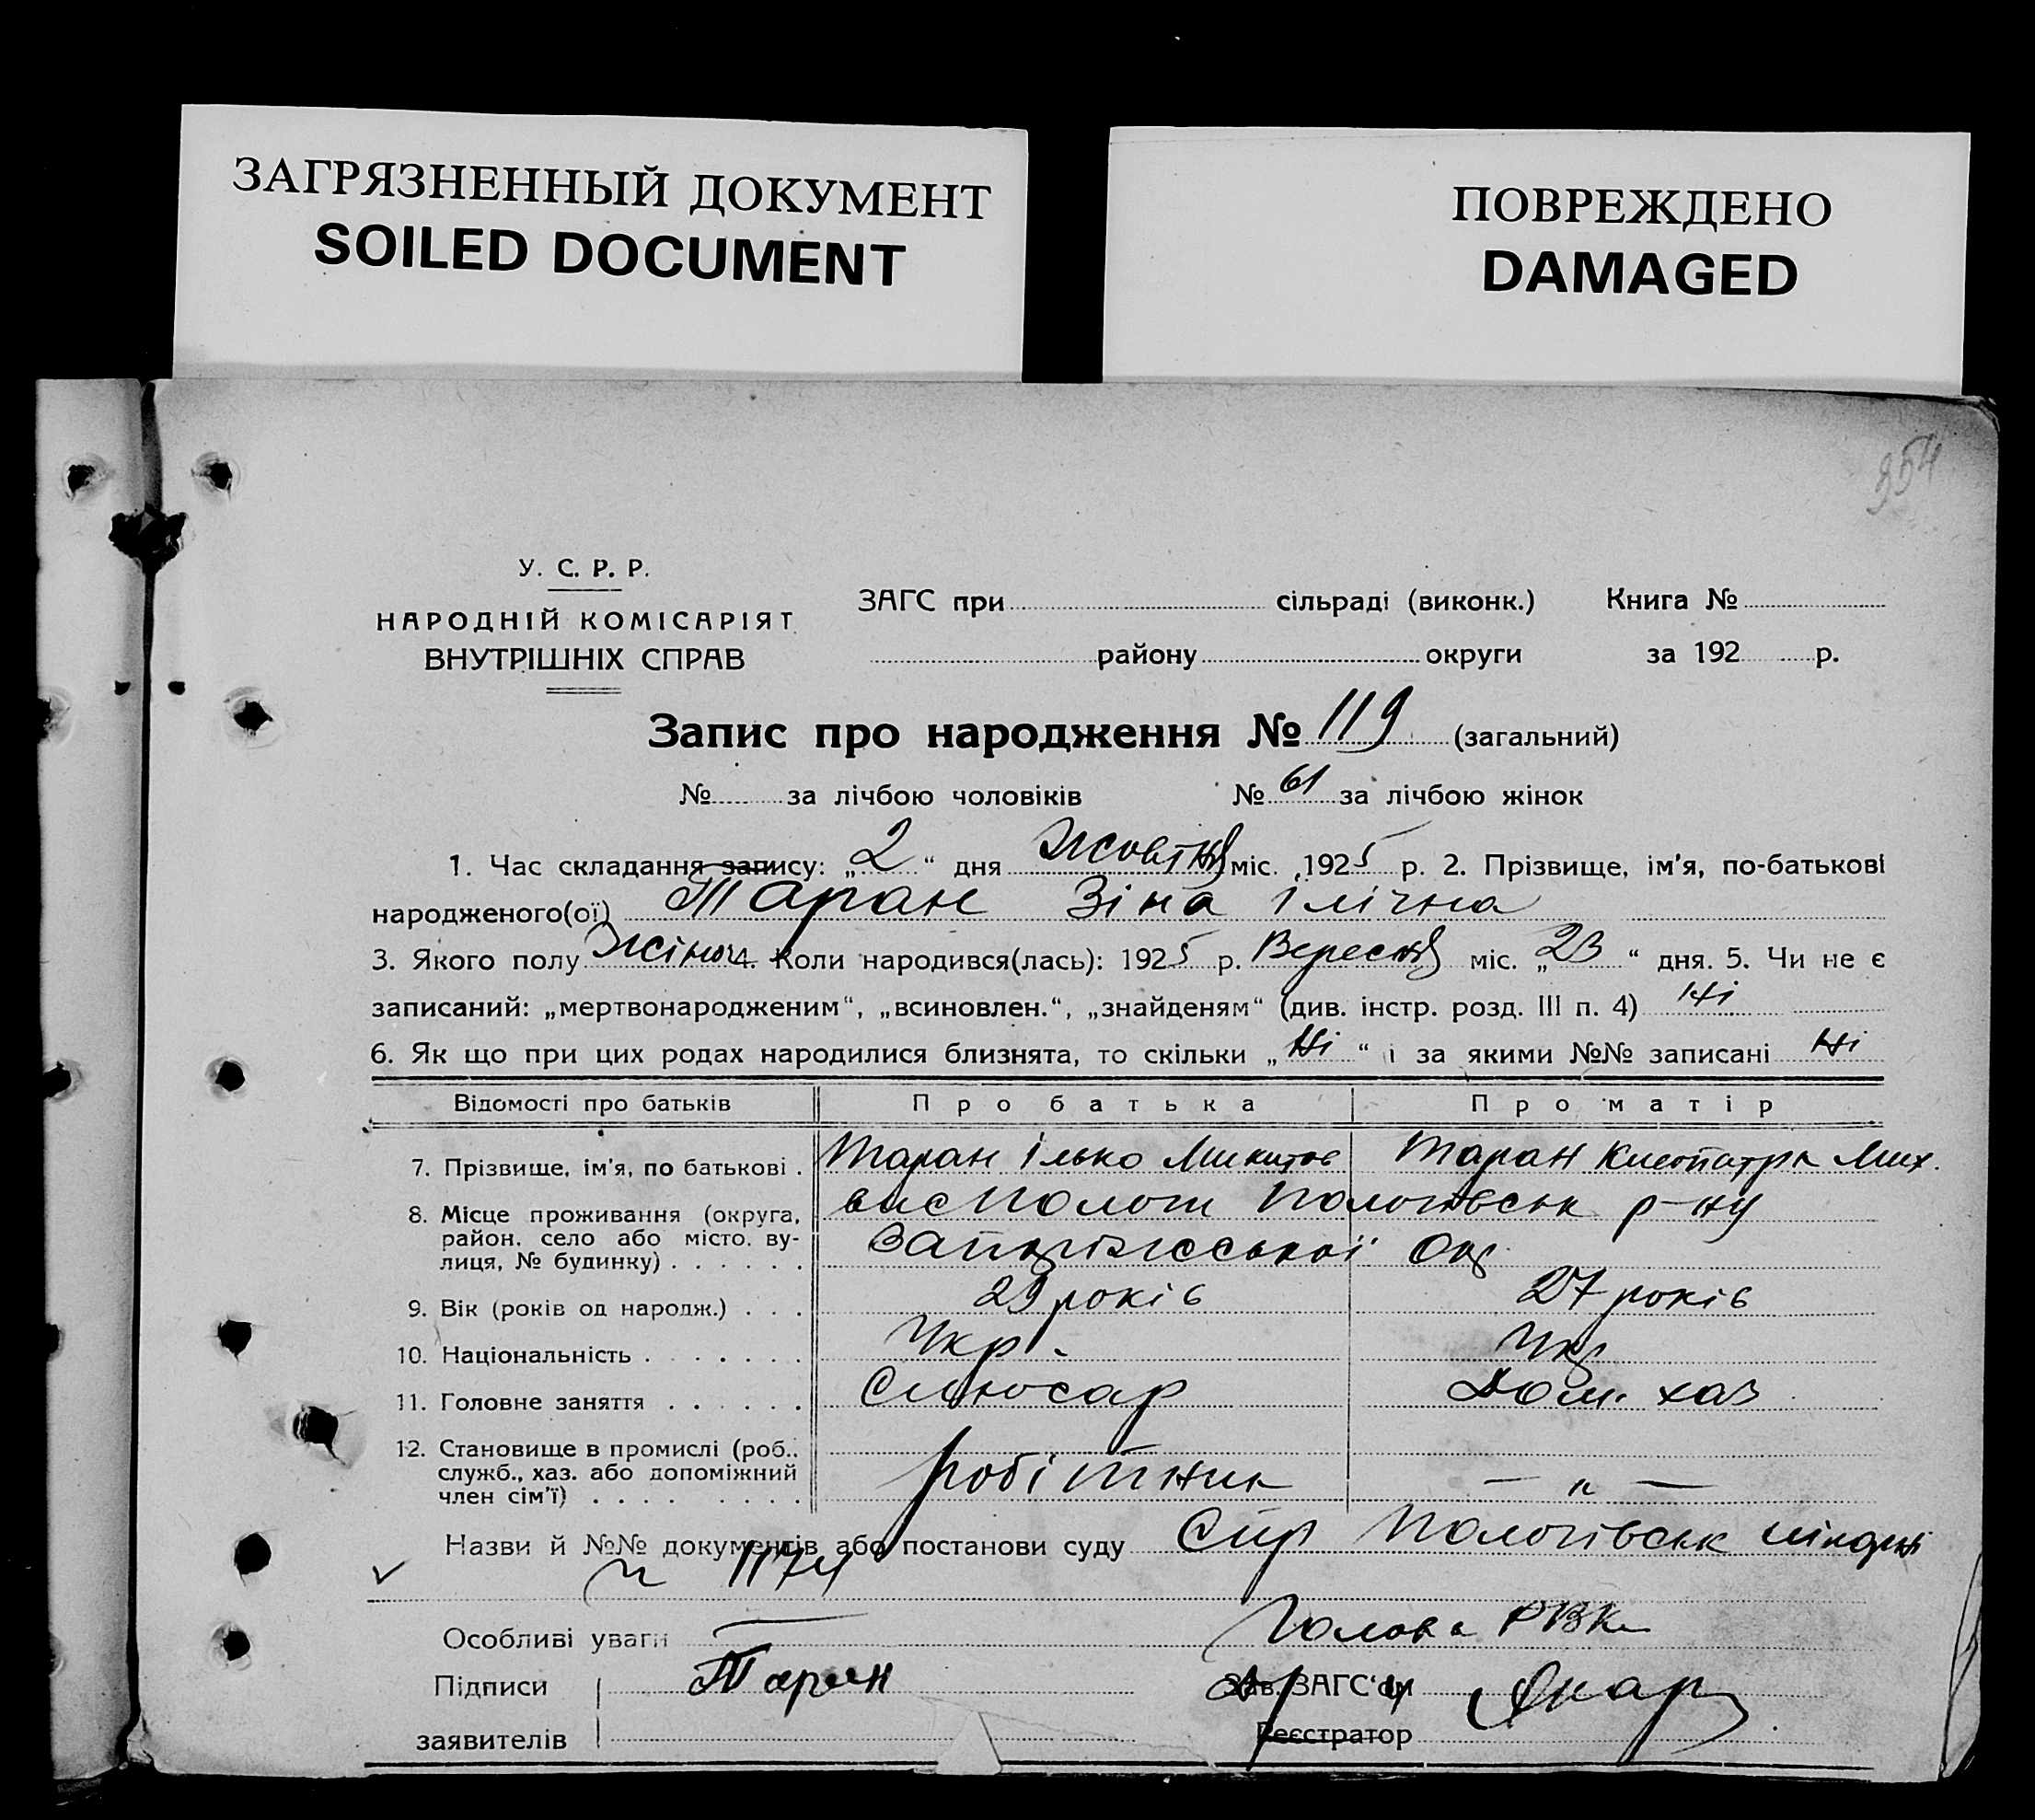 ЗАГРЯЗНЕННЫЙ ДОКУМЕНТ
SOILED DOCUMENT
ПОВРЕЖДЕНО
DAMAGED
354
У. С. Р. Р.
НАРОДНІЙ КОМІСАРІЯТ
ВНУТРІШНІХ СПРАВ
ЗАГС при сільраді (виконк.) Книга №
району округи за 192 р.
Запис про народження № 119 (загальний)
№ за лічбою чоловіків № 61 за лічбою жінок
1. Час складання запису: „2“ дня Жовтня міс. 1925 р. 2. Прізвище, ім'я, по-батькові
народженого(ої) Таран Зіна Ілічна
3. Якого полу Жіноч 4. Коли народився(лась): 1925 р. Вересня міс. „23“ дня. 5. Чи не є
записаний: „мертвонародженим“, „всиновлен.“, „знайденям“ (див. інстр. розд. III п. 4) Ні
6. Як що при цих родах народилися близнята, то скільки „Ні“ і за якими №№ записані Ні
Відомості про батьків Про батька Про матір
7. Прізвище, ім'я, по батькові . Таран Ілько Микитов Таран Клеопатра Мих.
8. Місце проживання (округа, Пологи Пологівськ р-ну
район, село або місто, ву-
лиця, № будинку) . . . . . . Запоріжської Окр
9. Вік (років од народж.) . . . 29 років 27 років
10. Національність . . . . . . . Укр. Укр
11. Головне заняття . . . . . . Слюсар Дом. хаз
12. Становище в промислі (роб.,
служб., хаз. або допоміжний
член сім'ї) . . . . . . . . робітник — „ —
Назви й №№ документів або постанови суду Пологівськ
№ 1174
Особливі уваги — Голова РВК
Підписи Таран Зав. ЗАГС'ом
заявителів Реєстратор